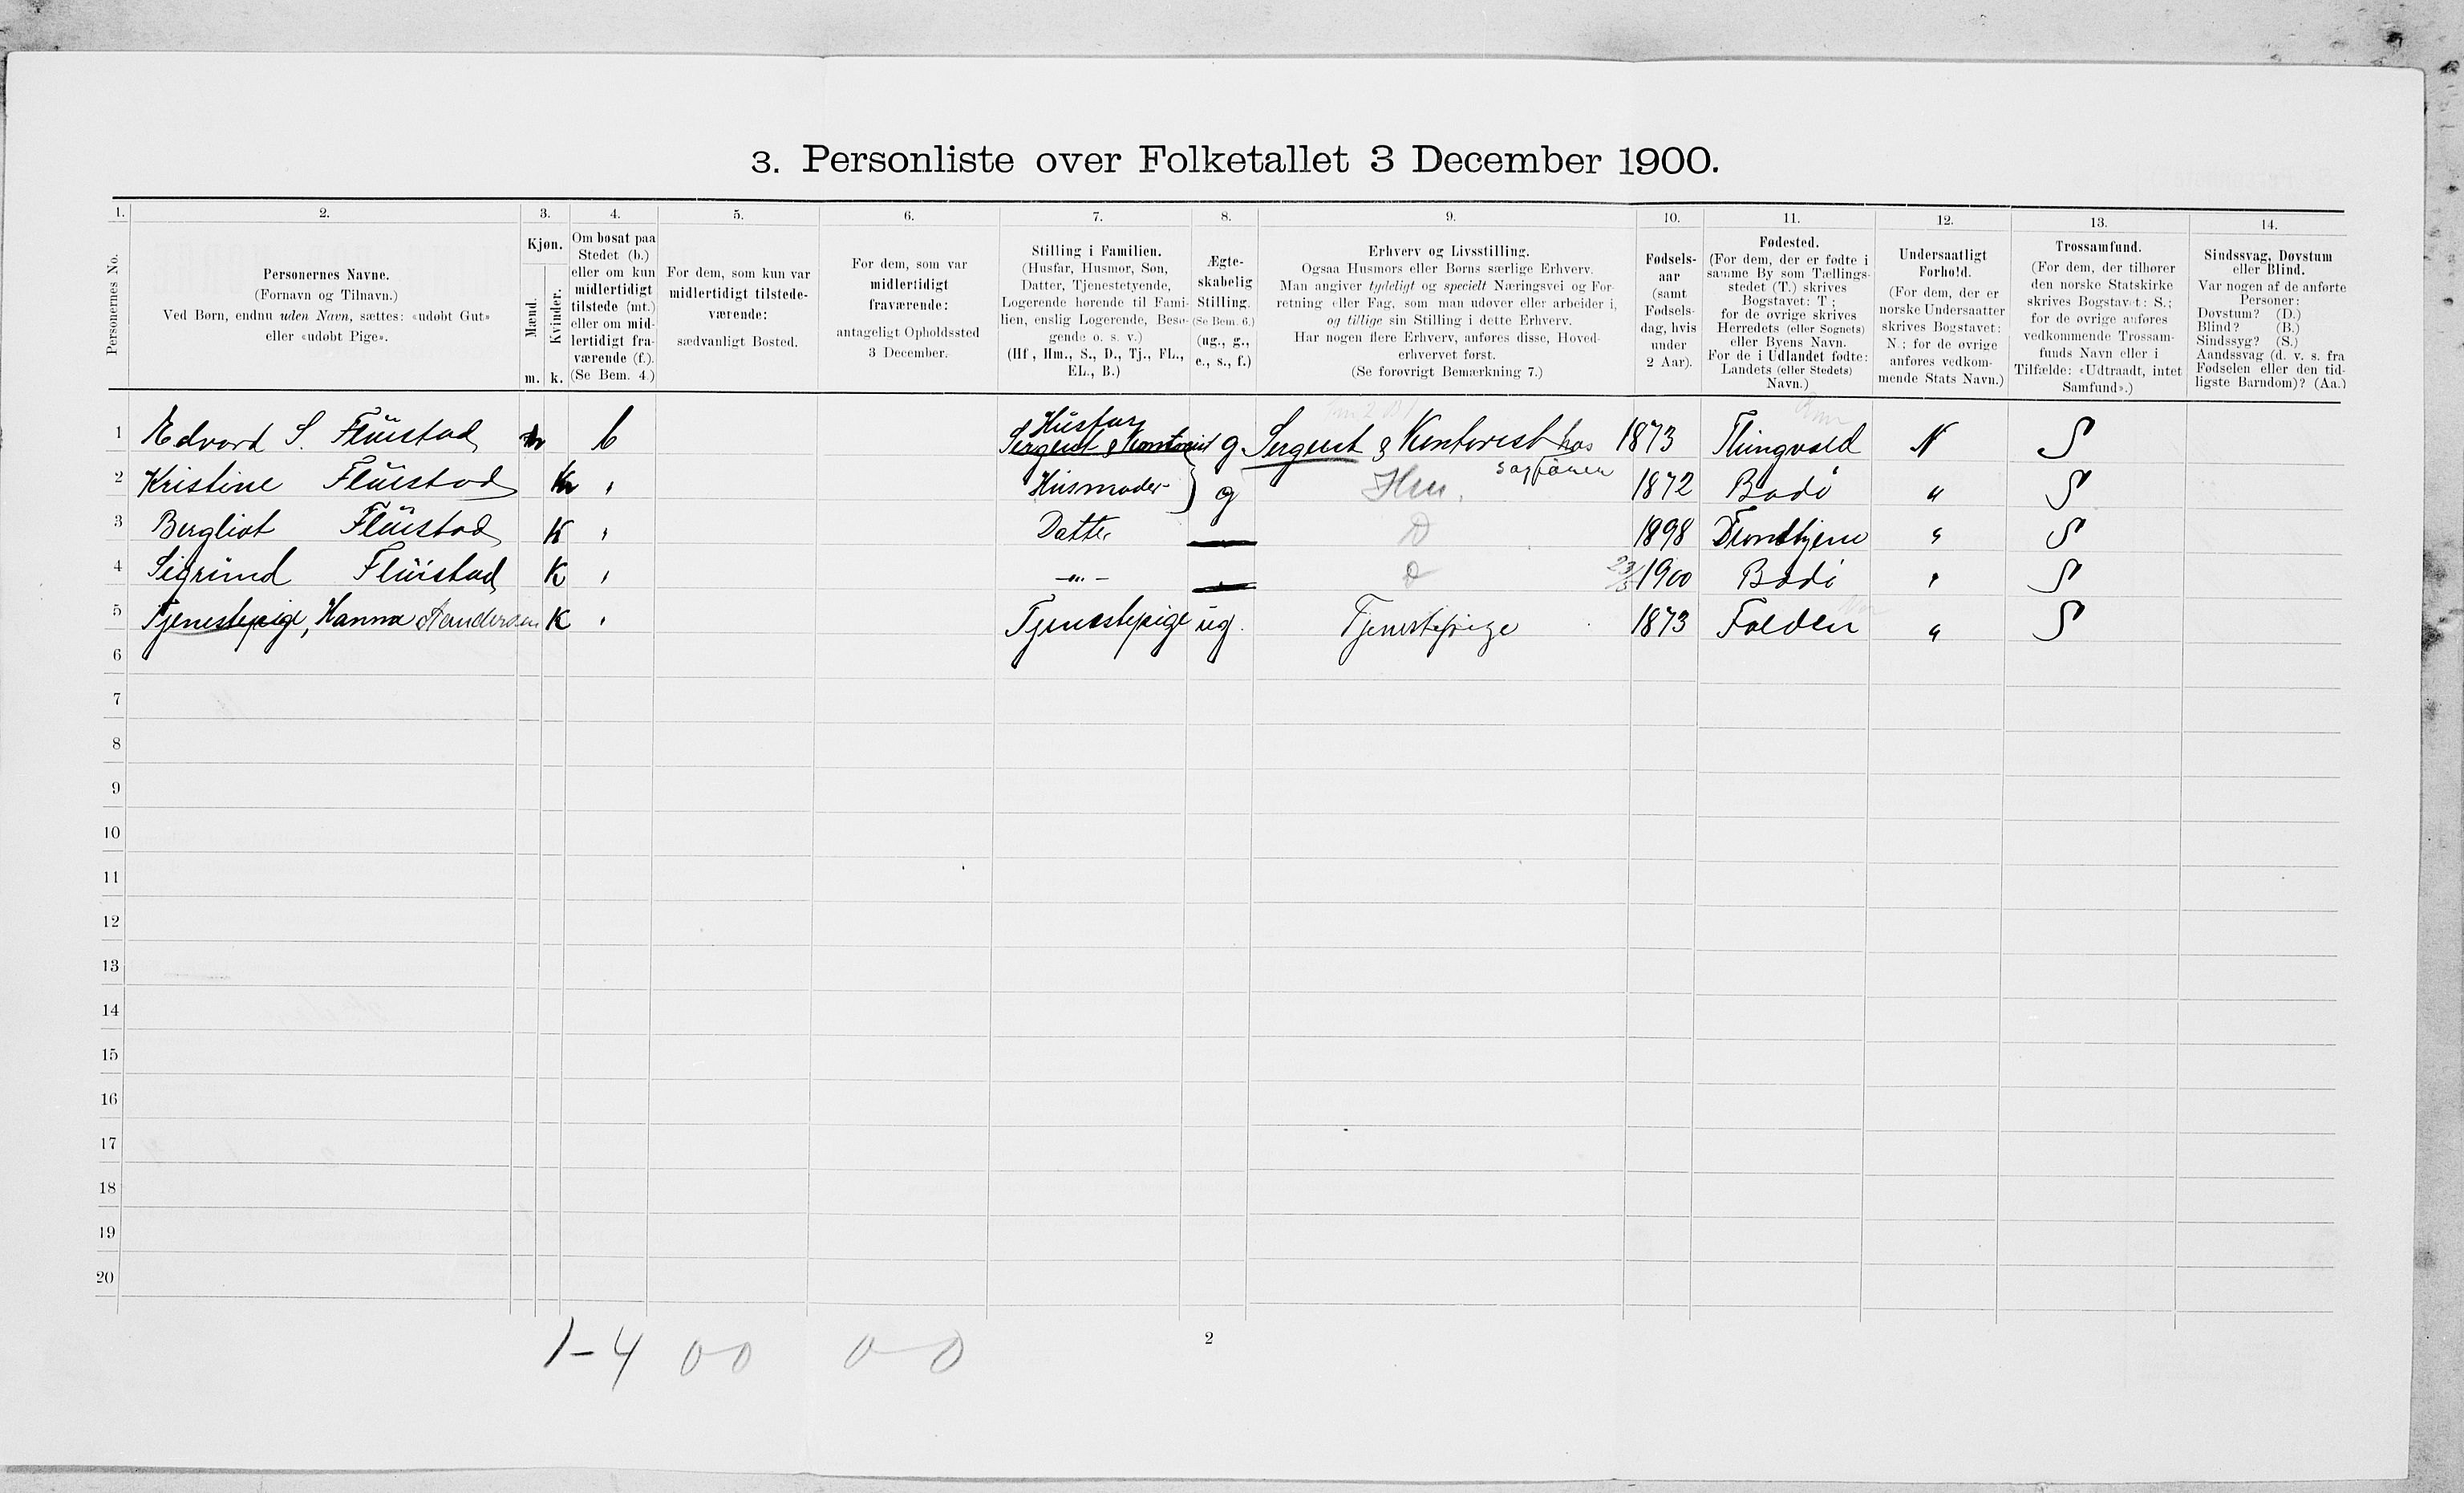 3. Personliste over Folketallet 3 December 1900.
1. 2. 3. 4. 5. 6. 7. 8. 9. 10. 11. 12. 13. 14.
Personernes No.
Personernes Navne.
(Fornavn og Tilnavn.)
Ved Børn, endnu uden Navn, sættes: «udøbt Gut»
eller «udøbt Pige».
Kjøn.
Mænd.
Kvinder.
m. k.
Om bosat paa
Stedet (b.)
eller om kun
midlertidigt
tilstede (mt.)
eller om mid-
lertidigt fra-
værende (f.).
(Se Bem. 4.)
For dem, som kun var
midlertidigt tilstede-
værende:
sædvanligt Bosted.
For dem, som var
midlertidigt
fraværende:
antageligt Opholdssted
3 December.
Stilling i Familien.
(Husfar, Husmor, Søn,
Datter, Tjenestetyende,
Logerende hørende til Fami-
lien, enslig Logerende, Besø-
gende o. s. v.)
(Hf, Hm., S., D., Tj., FL.,
EL., B.)
Ægte-
skabelig
Stilling.
(Se Bem. 6.)
(ug., g.,
e., s., f.)
Erhverv og Livsstilling.
Ogsaa Husmors eller Børns særlige Erhverv.
Man angiver tydeligt og specielt Næringsvei og For-
retning eller Fag, som man udøver eller arbeider i,
og tillige sin Stilling i dette Erhverv.
Har nogen flere Erhverv, anføres disse, Hoved-
erhvervet først.
(Se forøvrigt Bemærkning 7.)
Fødsels-
aar
(samt
Fødsels-
dag, hvis
under
2 Aar).
Fødested.
(For dem, der er fødte i
samme By som Tællings-
stedet (T.) skrives
Bogstavet: T;
for de øvrige skrives
Herredets (eller Sognets)
eller Byens Navn.
For de i Udlandet fødte:
Landets (eller Stedets)
Navn.)
Undersaatligt
Forhold.
(For dem, der er
norske Undersaatter
skrives Bogstavet:
N.; for de øvrige
anføres vedkom-
mende Stats Navn.)
Trossamfund.
(For dem, der tilhører
den norske Statskirke
skrives Bogstavet: S.;
for de øvrige anføres
vedkommende Trossam-
funds Navn eller i
Tilfælde: «Udtraadt, intet
Samfund».)
Sindssvag, Døvstum
eller Blind.
Var nogen af de anførte
Personer:
Døvstum? (D.)
Blind? (B.)
Sindssyg? (S.)
Aandssvag (d. v. s. fra
Fødselen eller den tid-
ligste Barndom)? (Aa.)
Husfar
1 Edvard S. Flüistad m b Sergeant & Kontorist g Sergent & Kontorist hos 1873 Thingvold N S
sagfører
2 Kristine Flüistad K " Husmoder g Hm. 1872 Bodö " S
3 Bergliot Flüistad K " Datter D 1898 Trondhjem " S
4 Sigrund Flüistad K " -"- D 23/5 1900 Bodö " S
5 Tjenestepige, Hanna Aandersen K " Tjenestepige ug. Tjenestepige 1873 Folden " S
6
7
8
9
10
11
12
13
14
15
16
17
18
19
20
1-4 00 0-0
2